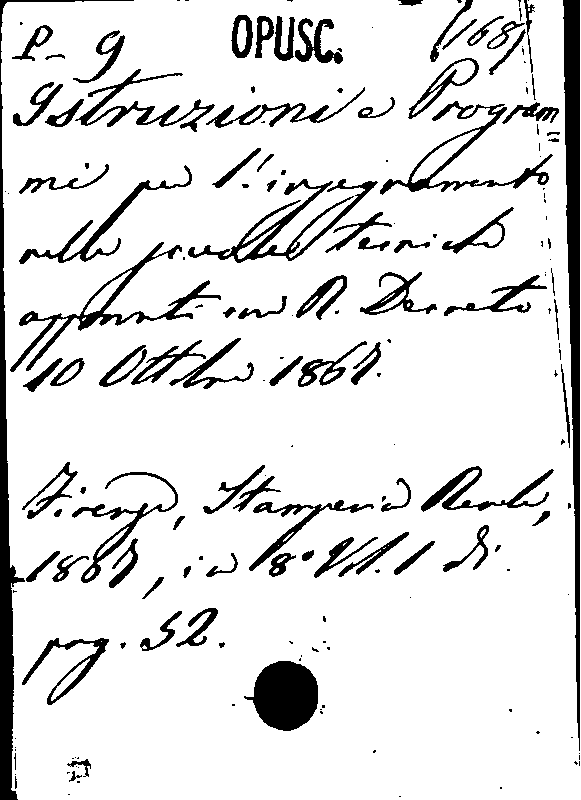 P- 9 OPUSC. (168)
Istruzioni e Program=
mi per l'insegnamento
nelle scuole tecniche
approvati con R. Decreto
10 Ottobre 1867.
Firenze, Stamperia Reale,
1867, in 8° Vol. 1 di
pag. 52.